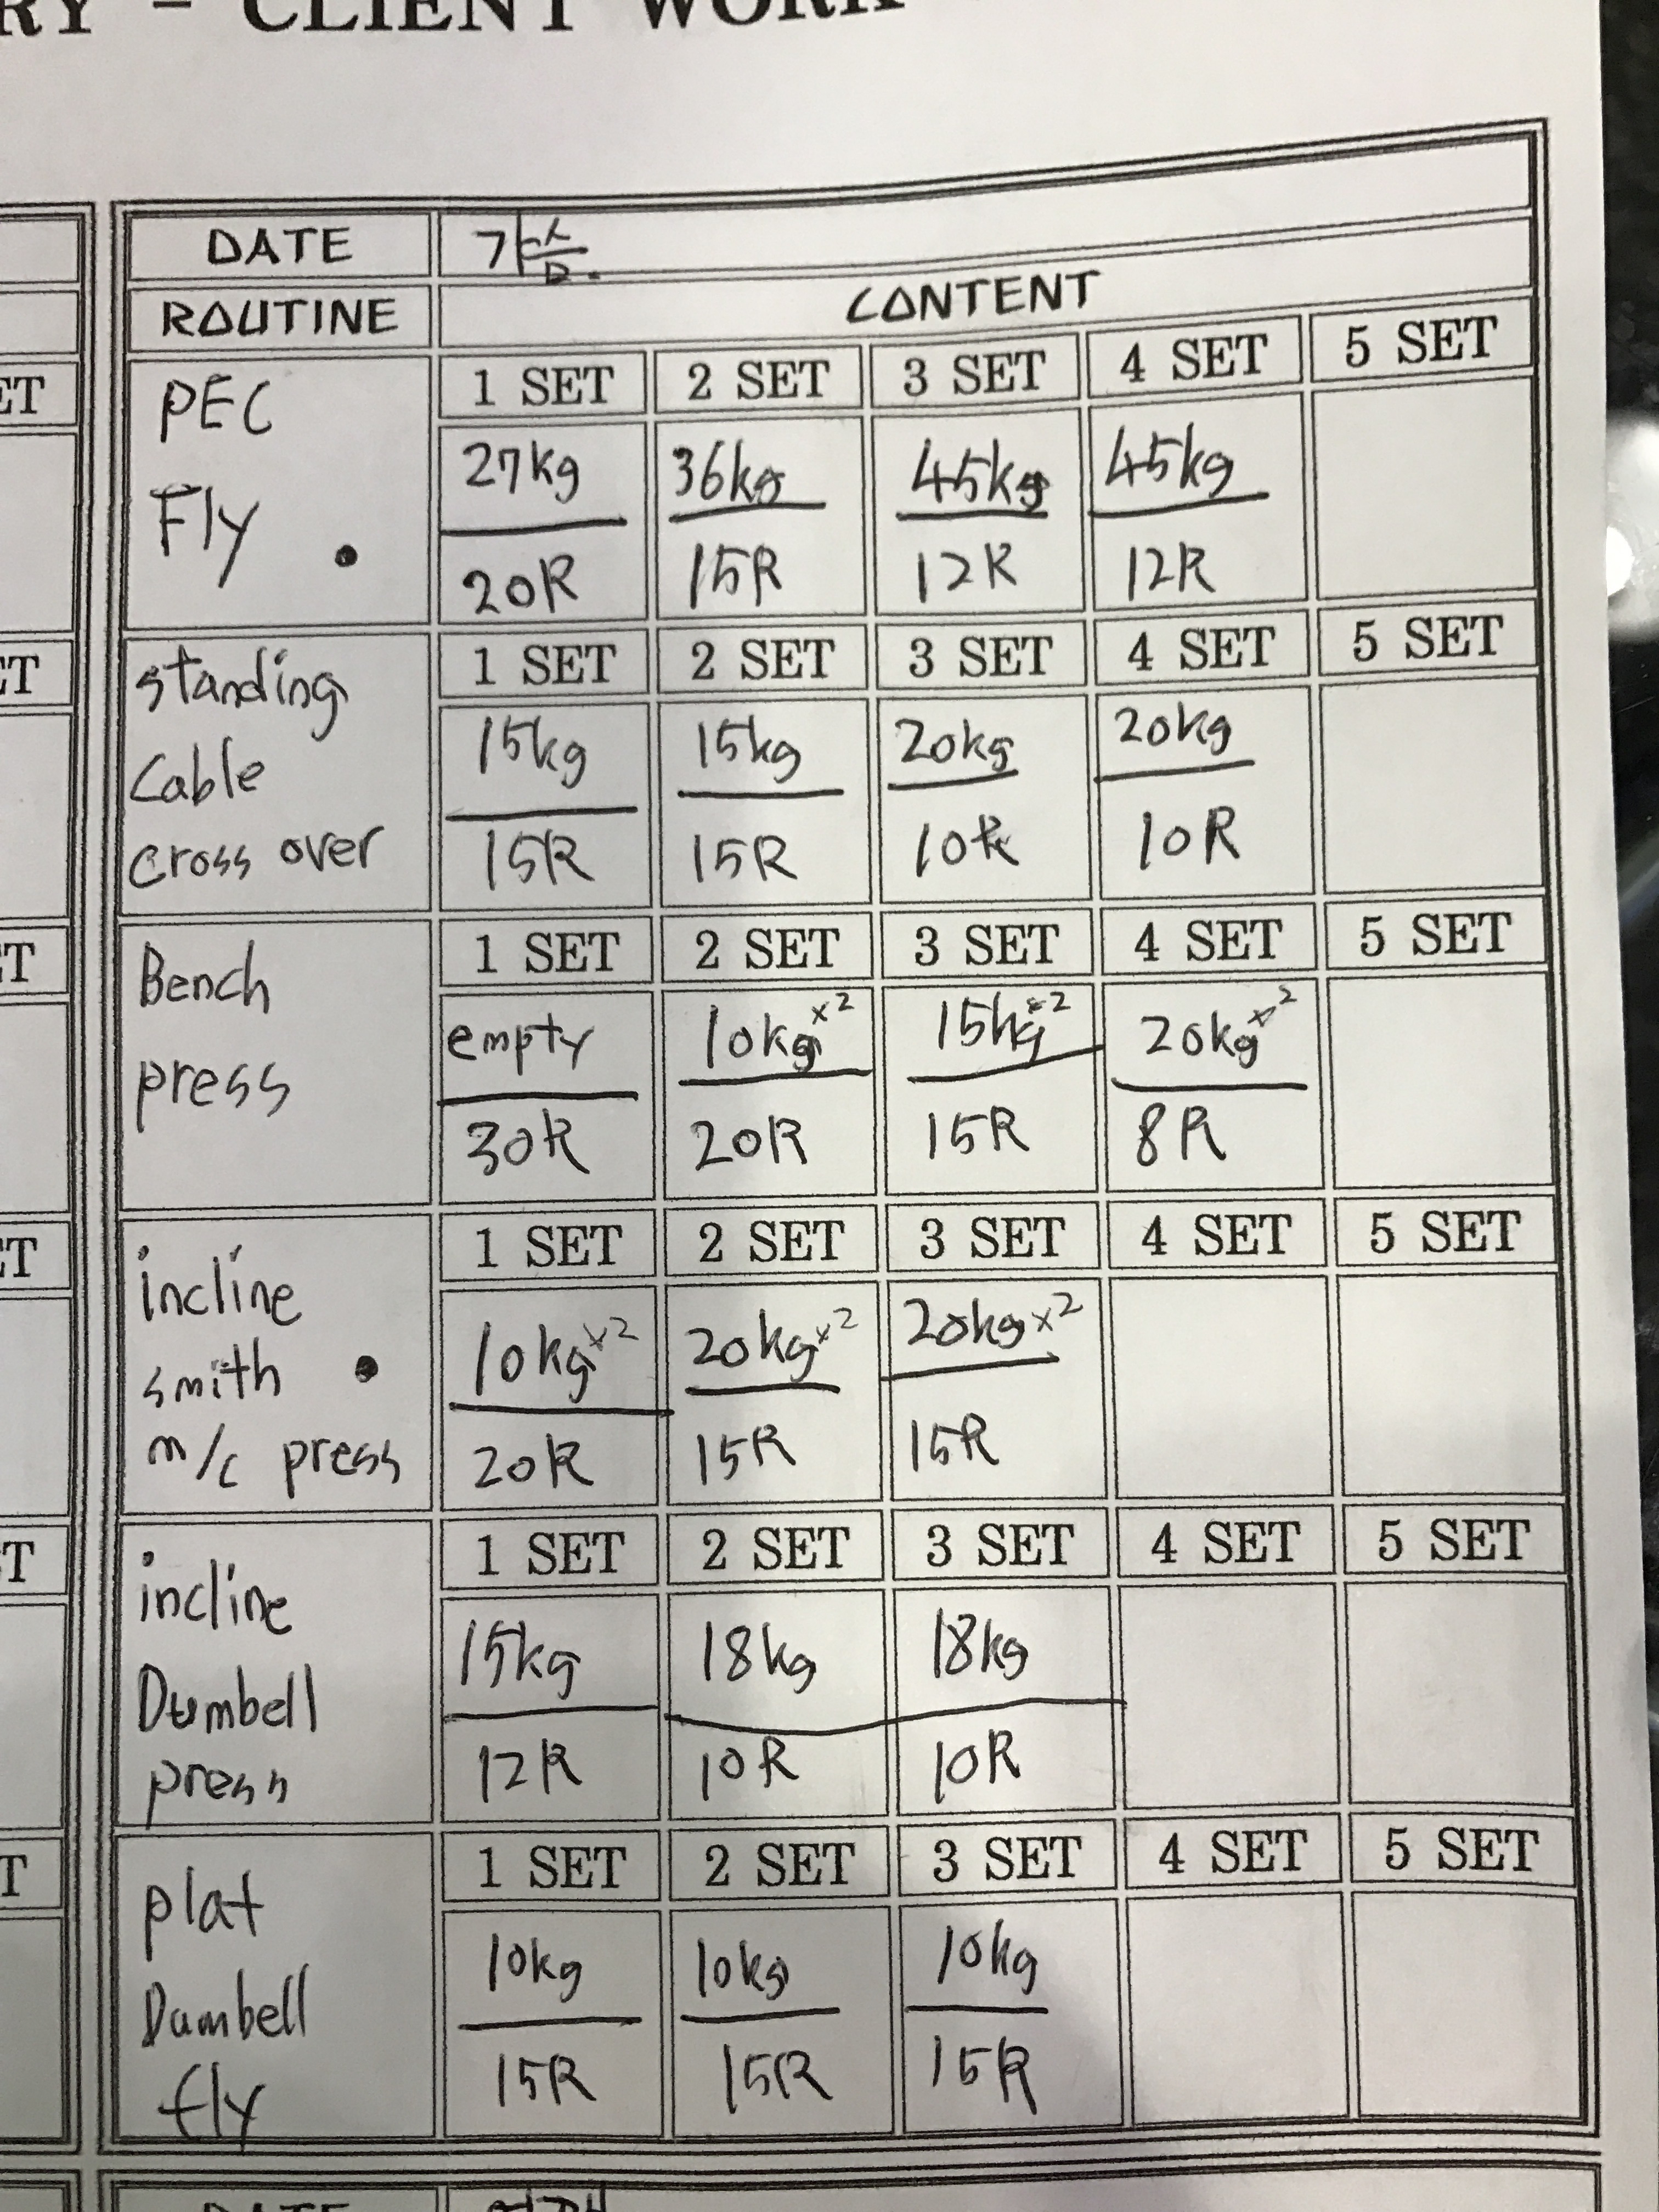 RY - CLIENT WORK
DATE 7
ROUTINE CONTENT
PEC Fly . 1 SET 2 SET 3 SET 4 SET 5 SET
27kg 36kg 45kg 45kg
20R 15R 12R 12R
standing Cable cross over 1 SET 2 SET 3 SET 4 SET 5 SET
15kg 15kg 20kg 20kg
15R 15R 10R 10R
Bench press 1 SET 2 SET 3 SET 4 SET 5 SET
empty 10kg x2 15kg x2 20kg x2
30R 20R 15R 8R
incline smith . m/c press 1 SET 2 SET 3 SET 4 SET 5 SET
10kg x2 20kg x2 20kg x2
20R 15R 15R
incline Dumbell press 1 SET 2 SET 3 SET 4 SET 5 SET
15kg 18kg 18kg
12R 10R 10R
plat Dumbell fly 1 SET 2 SET 3 SET 4 SET 5 SET
10kg 10kg 10kg
15R 15R 15R
DATE